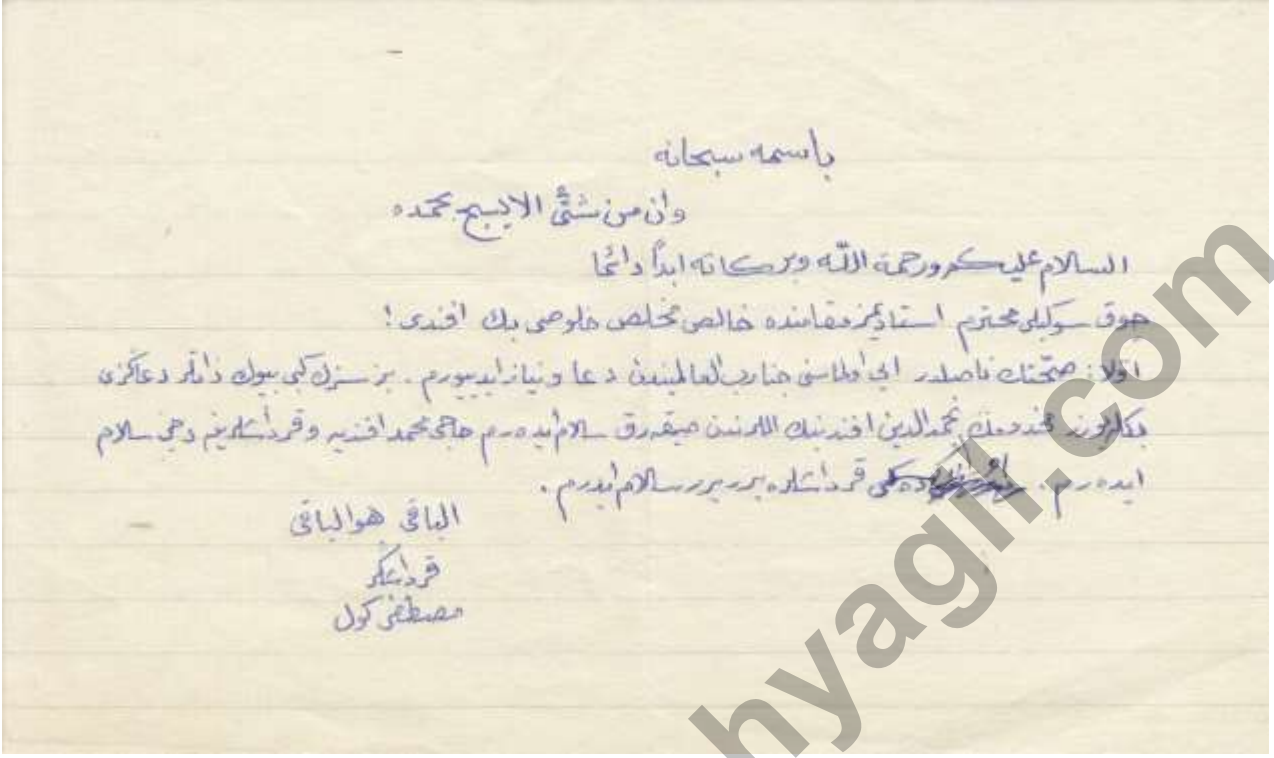 باسمه سبحانه
وان من شئ الا يسبح بحمده
السلام عليكم ورحمة الله وبركاته ابداً دائما
چوق سوكيلى محترم استاديمز مقامنده خالص مخلص خلوصى بك افندى!
اولا: صحتك ناصلدر ايى اولماسنى جناب رب العالميندن دعا و نياز ايدييورم. بز سزك كبى بيوك ذاتلر دعاكزى
بكليورز نجم الدين افندينك اللرندن صيقەرق سلام ايدەرم حاجى محمد افنديه و قرداشلريم دخى سلام
ايدەرم قرداشلره برر برر سلام ايدرم.
الباقى هو الباقى
قرداشكز
مصطفى كول
hyagil.com